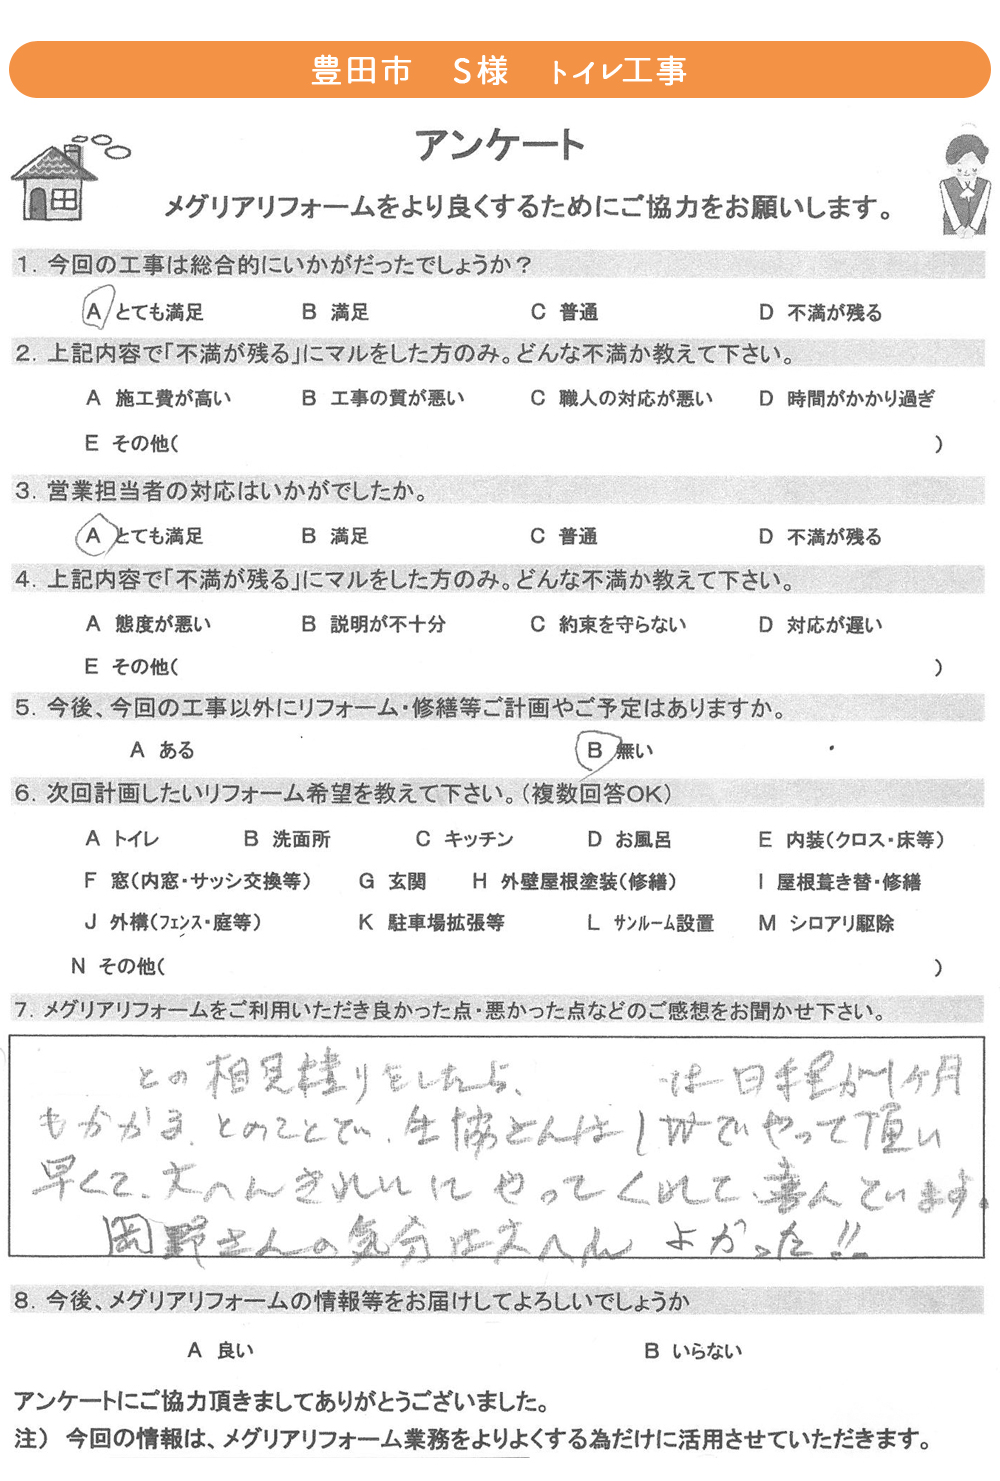 豊田市　S様　トイレ工事
アンケート
メグリアリフォームをより良くするためにご協力をお願いします。
1. 今回の工事は総合的にいかがだったでしょうか？
A とても満足 B 満足 C 普通 D 不満が残る
2. 上記内容で「不満が残る」にマルをした方のみ。どんな不満か教えて下さい。
A 施工費が高い B 工事の質が悪い C 職人の対応が悪い D 時間がかかり過ぎ
E その他( )
3. 営業担当者の対応はいかがでしたか。
A とても満足 B 満足 C 普通 D 不満が残る
4. 上記内容で「不満が残る」にマルをした方のみ。どんな不満か教えて下さい。
A 態度が悪い B 説明が不十分 C 約束を守らない D 対応が遅い
E その他( )
5. 今後、今回の工事以外にリフォーム・修繕等ご計画やご予定はありますか。
A ある B 無い
6. 次回計画したいリフォーム希望を教えて下さい。(複数回答OK)
A トイレ B 洗面所 C キッチン D お風呂 E 内装(クロス・床等)
F 窓(内窓・サッシ交換等) G 玄関 H 外壁屋根塗装(修繕) I 屋根葺き替・修繕
J 外構(フェンス・庭等) K 駐車場拡張等 L サンルーム設置 M シロアリ駆除
N その他( )
7. メグリアリフォームをご利用いただき良かった点・悪かった点などのご感想をお聞かせ下さい。
との相見積りをしたら、 は日程が1ヶ月
もかかる、とのことでい、生協さんは1日でやって頂い
早くて、大へんきれいにやってくれて、喜んでいます。
岡野さんの気分は大へん よかった!!
8. 今後、メグリアリフォームの情報等をお届けしてよろしいでしょうか
A 良い B いらない
アンケートにご協力頂きましてありがとうございました。
注） 今回の情報は、メグリアリフォーム業務をよりよくする為だけに活用させていただきます。